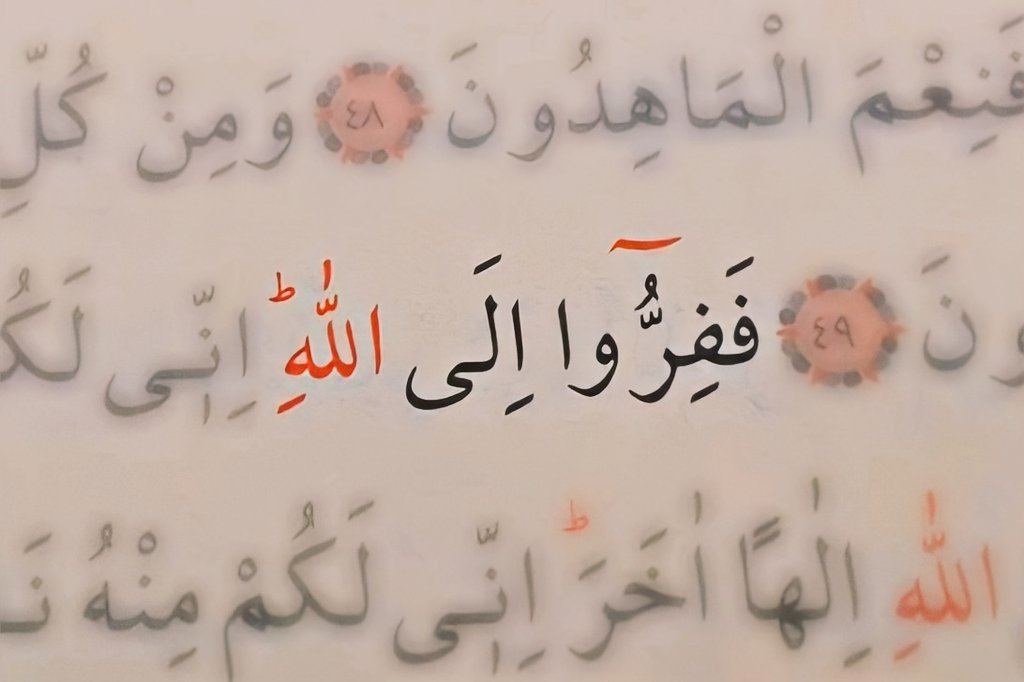 فَنِعْمَ الْمَاهِدُونَ ﴿٤٨﴾ وَمِنْ كُلِّ
ونَ ﴿٤٩﴾ فَفِرُّوٓا اِلَى اللّٰهِؕ اِنِّى لَكُ
اللّٰهِ اِلٰهًا اٰخَرَؕ اِنِّى لَكُمْ مِنْهُ نَ